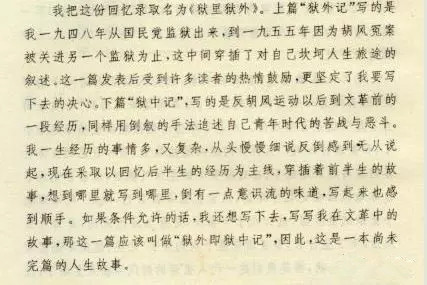 我把这份回忆录取名为《狱里狱外》。上篇“狱外记”写的是
我一九四八年从国民党监狱出来，到一九五五年因为胡风冤案
被关进另一个监狱为止，这中间穿插了对自己坎坷人生旅途的
叙述。这一篇发表后受到许多读者的热情鼓励，更坚定了我要写
下去的决心。下篇“狱中记”，写的是反胡风运动以后到文革前的
一段经历，同样用倒叙的手法追述自己青年时代的苦战与恶斗。
我一生经历的事情多，又复杂，从头慢慢细说反倒感到无从说
起，现在采取以回忆后半生的经历为主线，穿插着前半生的故
事，想到哪里就写到哪里，倒有一点意识流的味道，写起来也感
到顺手。如果条件允许的话，我还想写下去，写写我在文革中的
故事，那这一篇应该叫做“狱外即狱中记”，因此，这是一本尚未
完篇的人生故事。